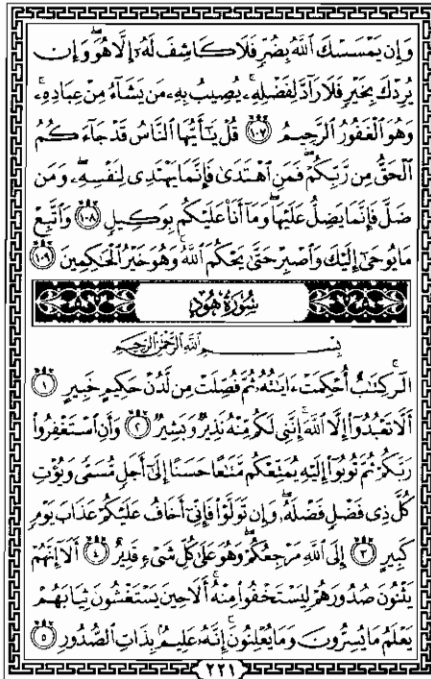 وَإِن يَمْسَسْكَ ٱللَّهُ بِضُرٍّ فَلَا كَاشِفَ لَهُۥٓ إِلَّا هُوَ ۖ وَإِن
يُرِدْكَ بِخَيْرٍ فَلَا رَآدَّ لِفَضْلِهِۦ ۚ يُصِيبُ بِهِۦ مَن يَشَآءُ مِنْ عِبَادِهِۦ ۚ
وَهُوَ ٱلْغَفُورُ ٱلرَّحِيمُ ١٠٧ قُلْ يَٰٓأَيُّهَا ٱلنَّاسُ قَدْ جَآءَكُمُ
ٱلْحَقُّ مِن رَّبِّكُمْ ۖ فَمَنِ ٱهْتَدَىٰ فَإِنَّمَا يَهْتَدِى لِنَفْسِهِۦ ۖ وَمَن
ضَلَّ فَإِنَّمَا يَضِلُّ عَلَيْهَا ۖ وَمَآ أَنَا۠ عَلَيْكُم بِوَكِيلٍ ١٠٨ وَٱتَّبِعْ
مَا يُوحَىٰٓ إِلَيْكَ وَٱصْبِرْ حَتَّىٰ يَحْكُمَ ٱللَّهُ ۚ وَهُوَ خَيْرُ ٱلْحَٰكِمِينَ ١٠٩
سُورَةُ هُودٍ
بِسْمِ ٱللَّهِ ٱلرَّحْمَٰنِ ٱلرَّحِيمِ
الٓر ۚ كِتَٰبٌ أُحْكِمَتْ ءَايَٰتُهُۥ ثُمَّ فُصِّلَتْ مِن لَّدُنْ حَكِيمٍ خَبِيرٍ ١
أَلَّا تَعْبُدُوٓا۟ إِلَّا ٱللَّهَ ۚ إِنَّنِى لَكُم مِّنْهُ نَذِيرٌ وَبَشِيرٌ ٢ وَأَنِ ٱسْتَغْفِرُوا۟
رَبَّكُمْ ثُمَّ تُوبُوٓا۟ إِلَيْهِ يُمَتِّعْكُم مَّتَٰعًا حَسَنًا إِلَىٰٓ أَجَلٍ مُّسَمًّى وَيُؤْتِ
كُلَّ ذِى فَضْلٍ فَضْلَهُۥ ۖ وَإِن تَوَلَّوْا۟ فَإِنِّىٓ أَخَافُ عَلَيْكُمْ عَذَابَ يَوْمٍ
كَبِيرٍ ٣ إِلَى ٱللَّهِ مَرْجِعُكُمْ ۖ وَهُوَ عَلَىٰ كُلِّ شَىْءٍ قَدِيرٌ ٤ أَلَآ إِنَّهُمْ
يَثْنُونَ صُدُورَهُمْ لِيَسْتَخْفُوا۟ مِنْهُ ۚ أَلَا حِينَ يَسْتَغْشُونَ ثِيَابَهُمْ
يَعْلَمُ مَا يُسِرُّونَ وَمَا يُعْلِنُونَ ۚ إِنَّهُۥ عَلِيمٌۢ بِذَاتِ ٱلصُّدُورِ ٥
٢٢١